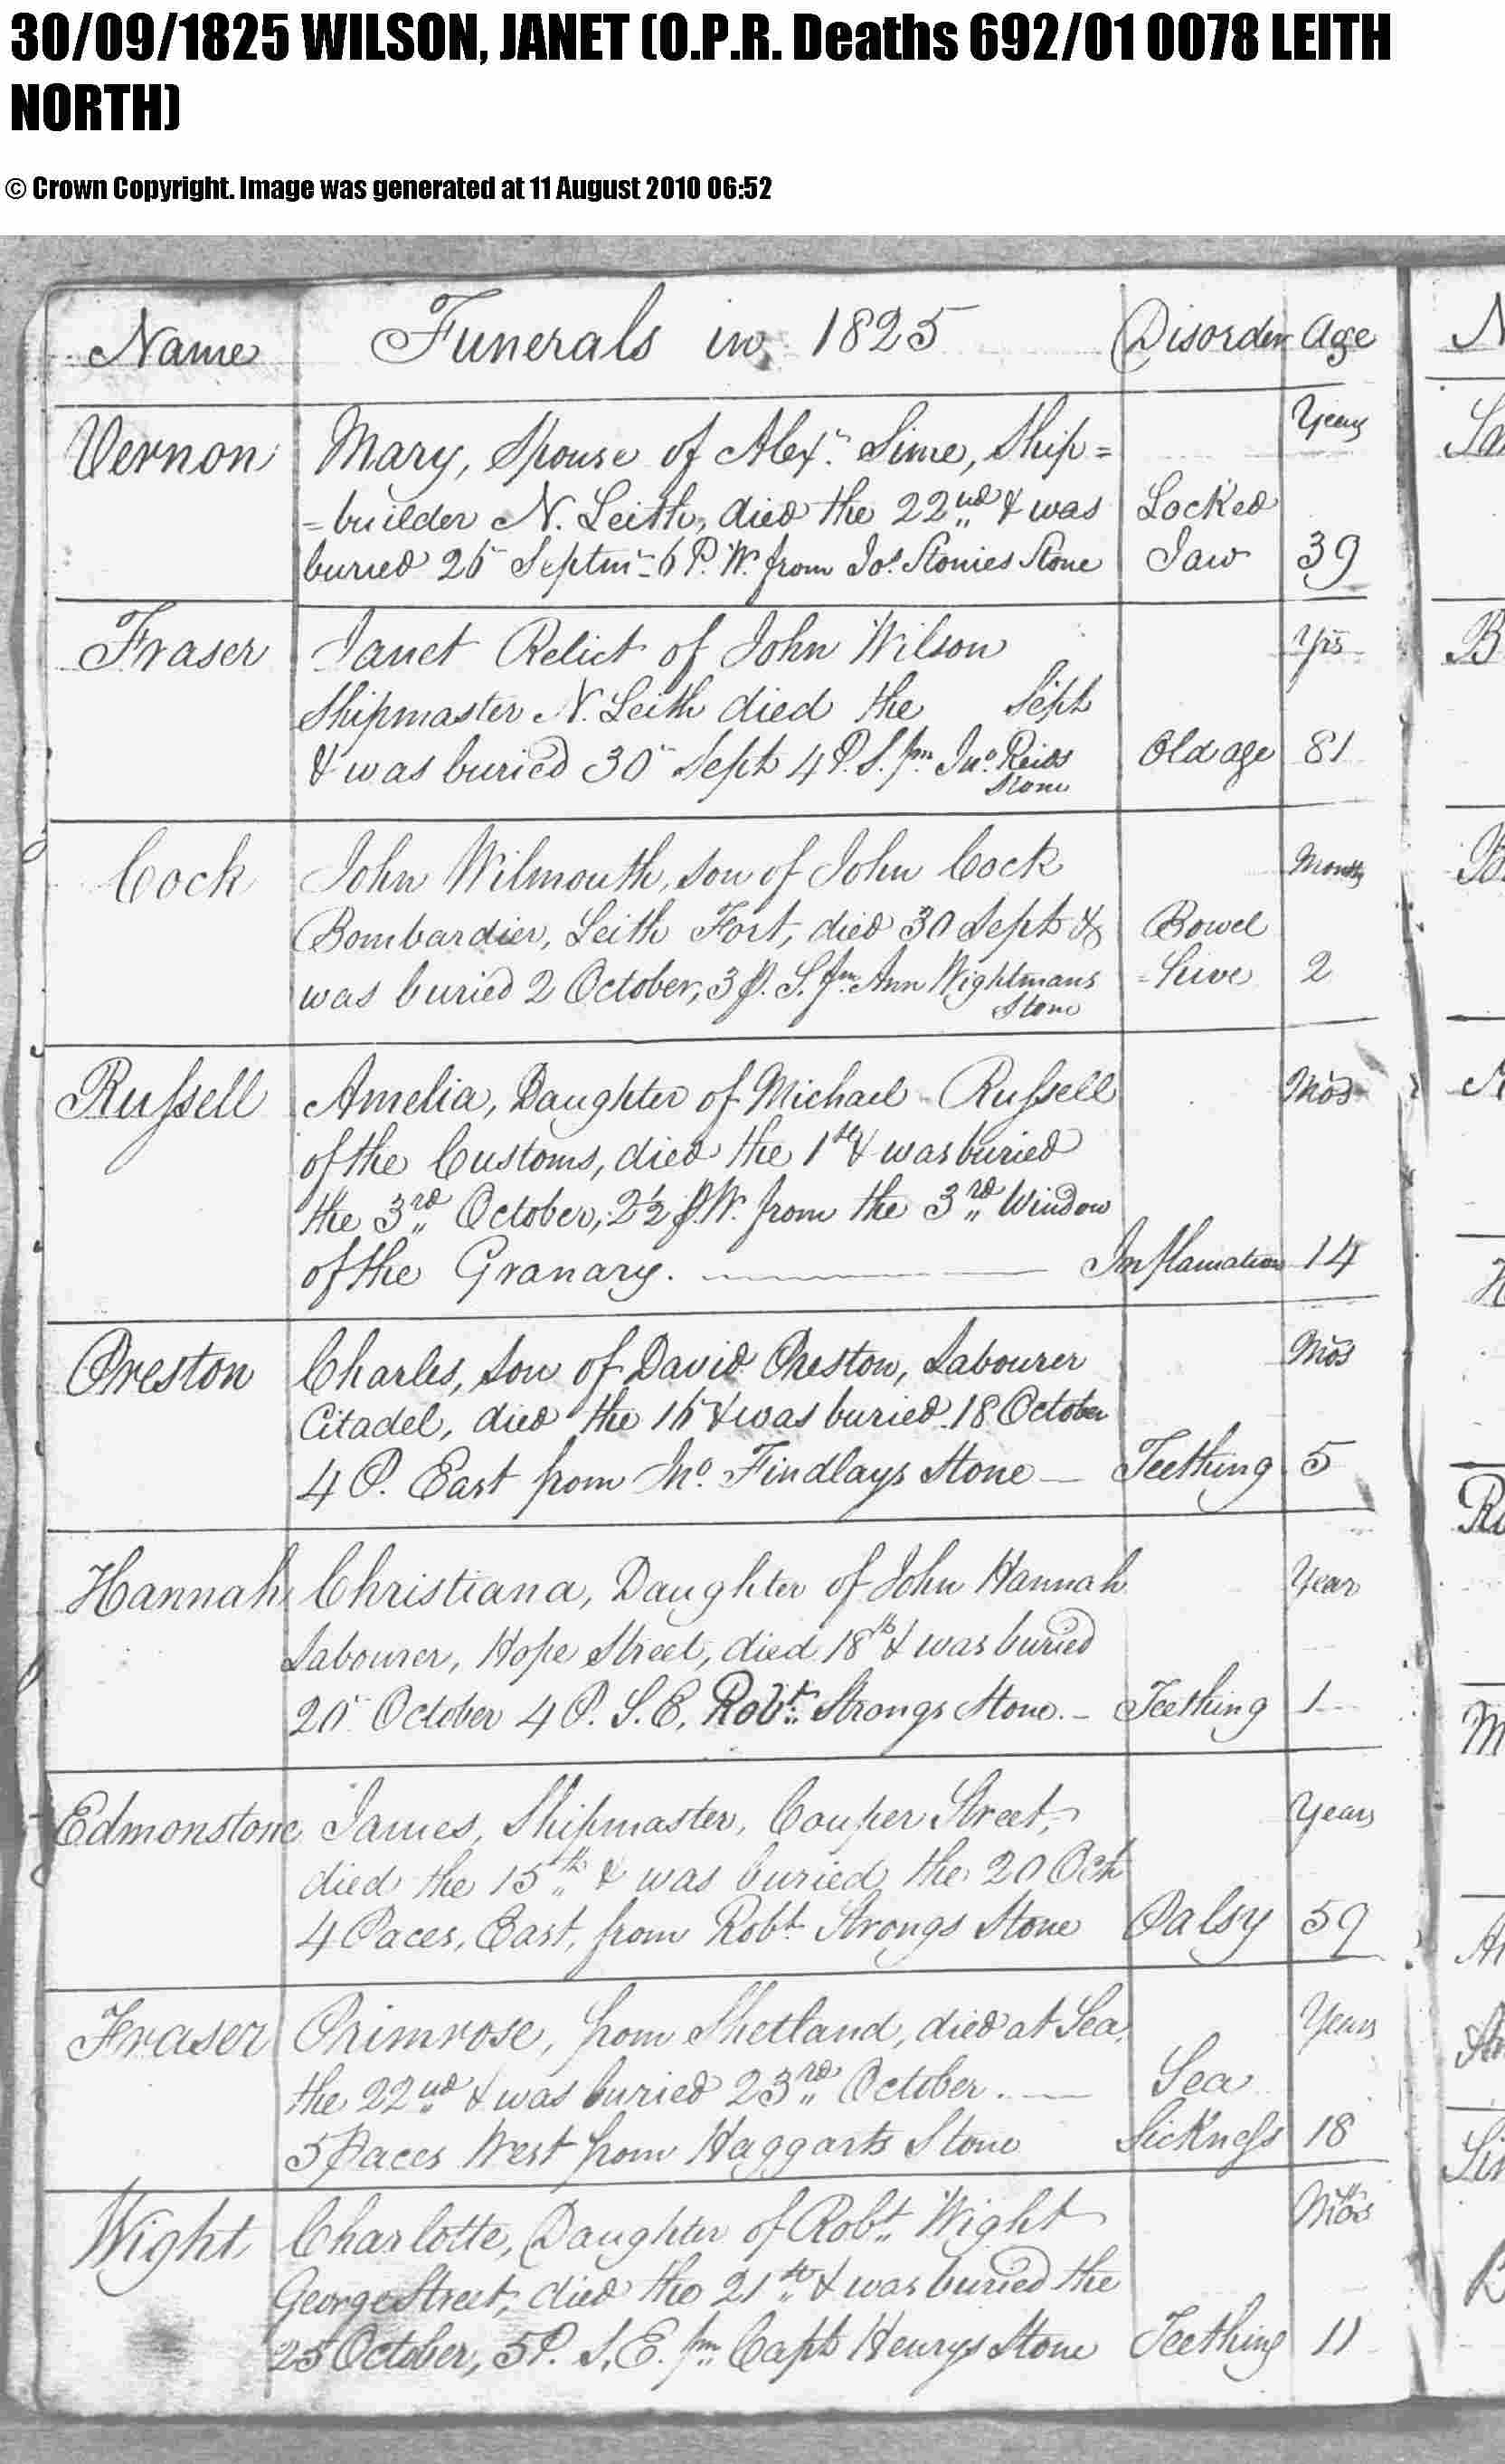 30/09/1825 WILSON, JANET (O.P.R. Deaths 692/01 0078 LEITH
NORTH)
© Crown Copyright. Image was generated at 11 August 2010 06:52
Name Funerals in 1825 Disorder Age
Vernon Mary, Spouse of Alexr. Sime, Ship= Years
=builder N. Leith, died the 22nd & was Locked
buried 25 Septmr 6 P. W. from Jos. Stonies Stone Jaw 39
Fraser Janet Relict of John Wilson Yrs
Shipmaster N. Leith died the Sept
& was buried 30 Sept 4 P. S. fm Jno. Reids Old age 81
Stone
Cock John Wilmouth, son of John Cock Months
Bombardier, Leith Fort, died 30 Sept & Bowel
was buried 2 October, 3 p. S. fm Ann Wightmans =hive 2
Stone
Russell Amelia, Daughter of Michael Russell Mos
of the Customs, died the 1st & was buried
the 3rd October, 2½ p. W. from the 3rd Window
of the Granary. Inflamation 14
Preston Charles, son of David Preston, Labourer Mos
Citadel, died the 16 & was buried 18 October
4 P. East from Jno. Findlays Stone Teething 5
Hannah Christiana, Daughter of John Hannah Year
Labourer, Hope Street, died 18th & was buried
20 October 4 P. S. E. Robt. Strongs Stone. Teething 1
Edmonstone James, Shipmaster, Couper Street, Years
died the 15th & was buried the 20 Oct
4 Paces, East, from Robt. Strongs Stone Palsy 59
Fraser Primrose, from Shetland, died at Sea, Years
the 22nd & was buried 23rd October. Sea
5 Paces West from Haggarts Stone Sickness 18
Wight Charlotte, Daughter of Robt. Wight Mos
George Street, died the 21st & was buried the
25 October, 5 P. S, E. fm Capt Henrys Stone Teething 11